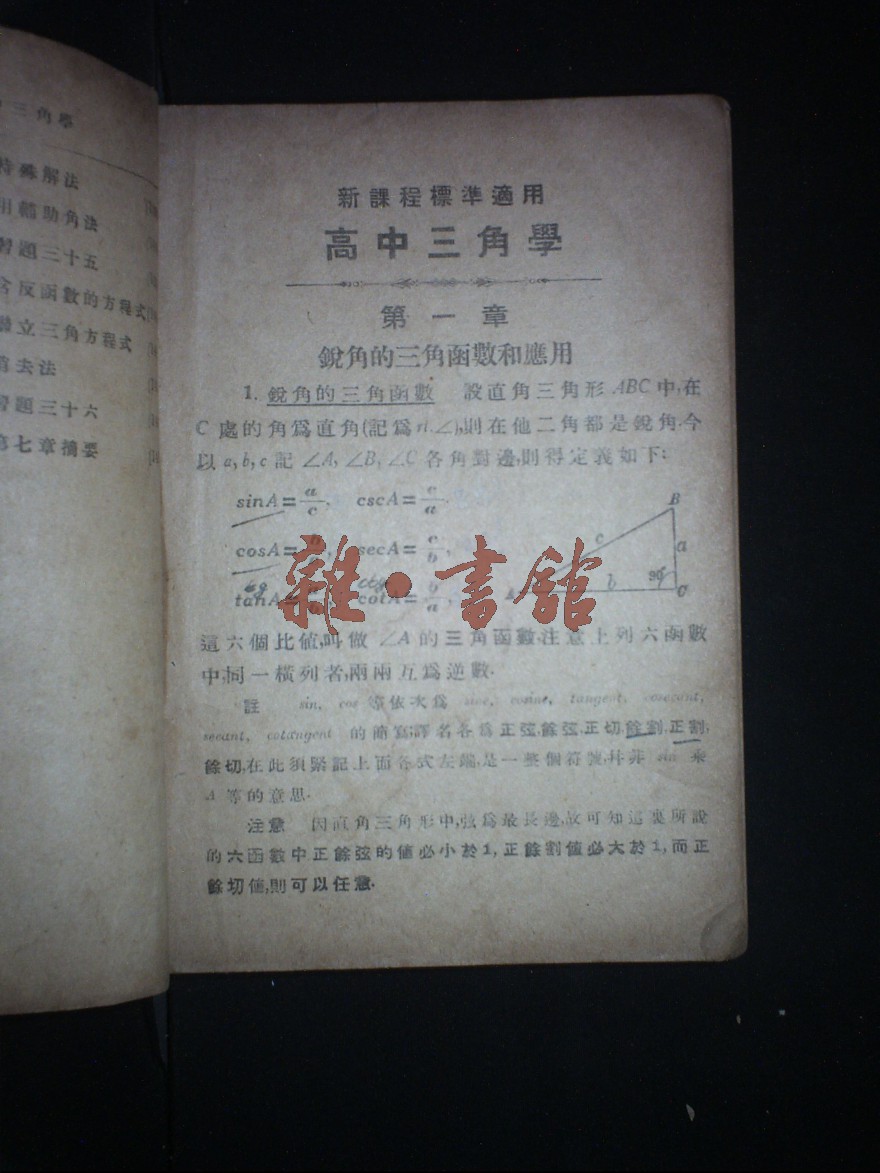 三角學
特殊解法
用輔助角法
習題三十五
含反函數的方程式
聯立三角方程式
消去法
習題三十六
第七章摘要
新課程標準適用
高中三角學
第一章
銳角的三角函數和應用
1. 銳角的三角函數 設直角三角形 ABC 中,在
C 處的角爲直角(記爲 rt.∠),則在他二角都是銳角.今
以 a, b, c 記 ∠A, ∠B, ∠C 各角對邊,則得定義如下:
sinA = a/c, cscA = c/a.
cosA = b/, secA = c/b,
tg ctg
tanA = cotA = b/a,
B
c
a
b
90°
C
A
雜·書館
這六個比値,叫做 ∠A 的三角函數.注意上列六函數
中,同一橫列者,兩兩互爲逆數.
註 sin, cos 等依次爲 sine, cosine, tangent, cosecant,
secant, cotangent 的簡寫;譯名各爲正弦,餘弦,正切,餘割,正割,
餘切,在此須緊記上面各式左端,是一整個符號,幷非 sin 乘
A 等的意思.
注意 因直角三角形中,弦爲最長邊,故可知這裏所說
的六函數中正餘弦的値必小於1,正餘割値必大於1,而正
餘切値,則可以任意.